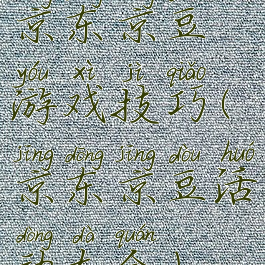 京东京豆
yóu xì jì qiǎo
游戏技巧(
jīng dōng jīng dòu huó
京东京豆活
dòng dà quán
动大全)